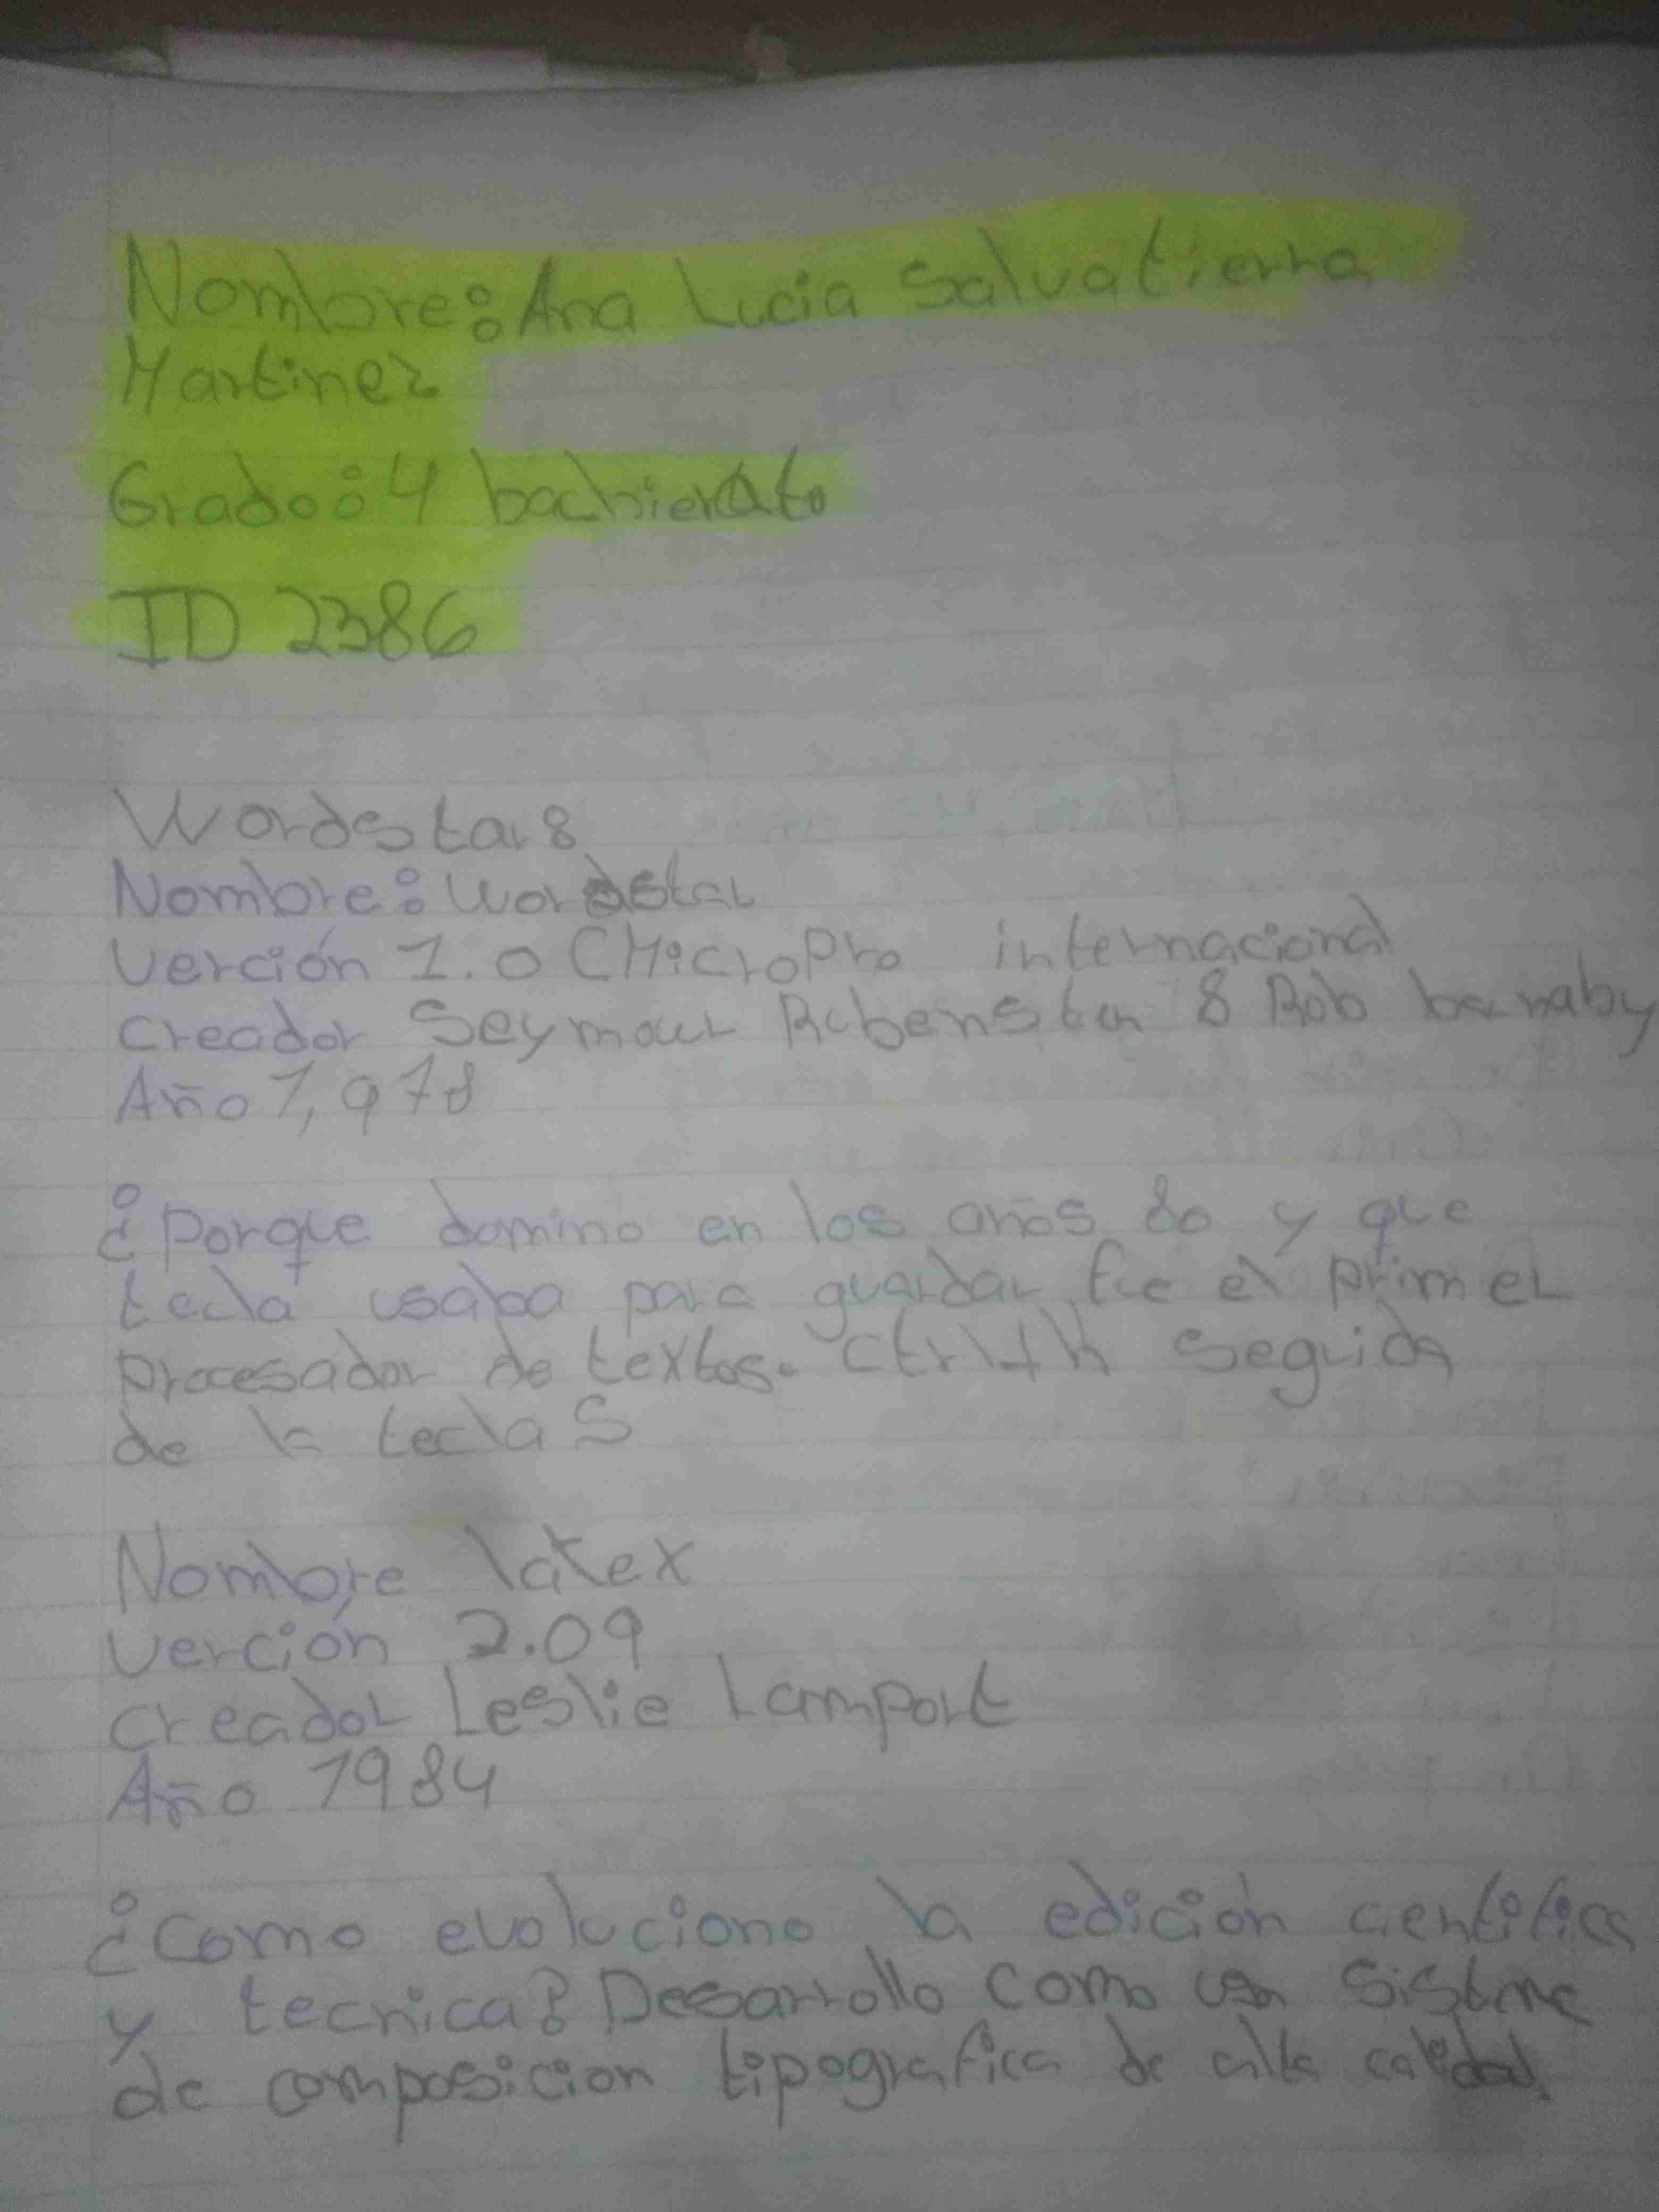 Nombre: Ana Lucia Salvatierra
Martinez
Grado: 4 bachierato
ID 2386
Wordstar:
Nombre: Wordstar
Verción 1.0 (MicroPro internacional
Creador Seymour Rubensten & Rob barnaby
Año 1,978
¿Porque domino en los años 80 y que
tecla usaba para guardar, fue el primer
procesador de textos. Ctrl+k seguida
de la tecla S
Nombre latex
Verción 2.09
Creador Leslie Lamport
Año 1984
¿Como evoluciono la edición cientifica
y tecnica? Desarrollo como un sistme
de composicion tipografica de alta calidad.